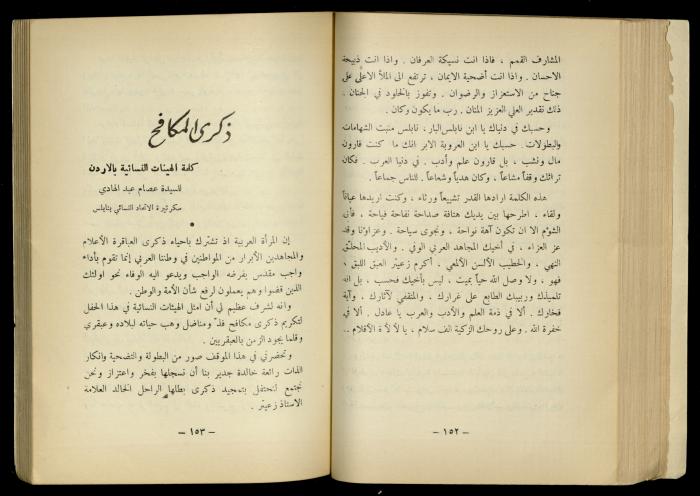 المشارف القمم ، فاذا انت نسيكة العرفان . واذا انت ذبيحة
الاحسان . واذا انت أضحية الايمان ، ترتفع الى الملأ الاعلى على
جناح من الاستعزاز والرضوان . وتفوز بالخلود في الجنان .
ذلك تقدير العلي العزيز المنان . رب ما يكون وكان .
وحسبك في دنياك يا ابن نابلس البار ، نابلس منبت الشهامات
والبطولات . حسبك يا ابن العروبة الابر انك ما كنت قارون
مال ونشب ، بل قارون علم وأدب . في دنيا العرب . فكان
تراثك وقفاً مشاعاً ، وكان هدياً وشعاعاً . للناس جماعاً .
هذه الكلمة ارادها القدر تشييعاً ورثاء ، وكنت اريدها عياناً
ولقاء ، اطرحها بين يديك هتافة صداحة نفاحة فياحة ، فأبى
الشؤم الا ان تكون آهة نواحة ، ونجوى سياحة . وعزاؤنا وقد
عز العزاء ، في أخيك المجاهد العربي الوفي . والأديب المحلق
النهي ، والخطيب الألسن الألمعي . أكرم زعيتر العبق اللبق ،
فهو ، ولا وصل الله حياً بميت ، ليس بأخيك فحسب ، بل انه
تلميذك وربيبك الطابع على غرارك . والمتقفي لآثارك . وآية
فخارك . ألا في ذمة العلم والأدب والعرب يا عادل . ألا في
خفرة الله . وعلى روحك الزكية الف سلام ، يا لألاة الأقلام ..
– ١٥٢ –
ذكرى المكافح
كلمة الهيئات النسائية بالاردن
للسيدة عصام عبد الهادي
سكرتيرة الاتحاد النسائي بنابلس
إن المرأة العربية اذ تشترك باحياء ذكرى العباقرة الأعلام
والمجاهدين الأبرار من المواطنين في وطننا العربي إنما تقوم بأداء
واجب مقدس يفرضه الواجب ويدعو اليه الوفاء نحو اولئك
الذين قضوا وهم يعملون لرفع شأن الأمة والوطن .
وانه لشرف عظيم لي أن امثل الهيئات النسائية في هذا الحفل
لتكريم ذكرى مكافح فذّ ومناضل وهب حياته لبلاده وعبقري
وقلما يجود الزمن بالعبقريين .
وتحضرني في هذا الموقف صور من البطولة والتضحية وانكار
الذات رائعة خالدة جدير بنا أن نسجلها بفخر واعتزاز ونحن
نجتمع لنحتفل بتمجيد ذكرى بطلها الراحل الخالد العلامة
الاستاذ زعيتر .
– ١٥٣ –